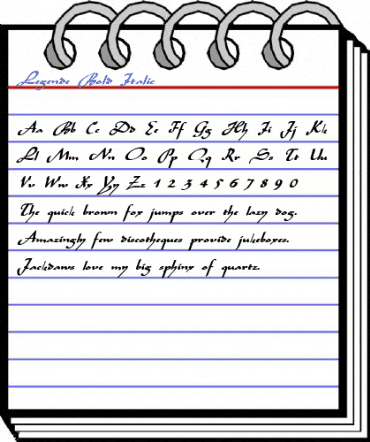 Legende Bold Italic
Aa Bb Cc Dd Ee Ff Gg Hh Ii Jj Kk
Ll Mm Nn Oo Pp Qq Rr Ss Tt Uu
Vv Ww Xx Yy Zz 1 2 3 4 5 6 7 8 9 0
The quick brown fox jumps over the lazy dog.
Amazingly few discotheques provide jukeboxes.
Jackdaws love my big sphinx of quartz.